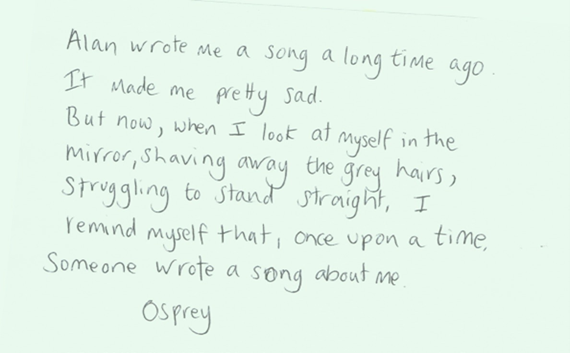 Alan wrote me a song a long time ago.
It made me pretty sad.
But now, when I look at myself in the
mirror, shaving away the grey hairs,
struggling to stand straight, I
remind myself that, once upon a time,
someone wrote a song about me.
Osprey